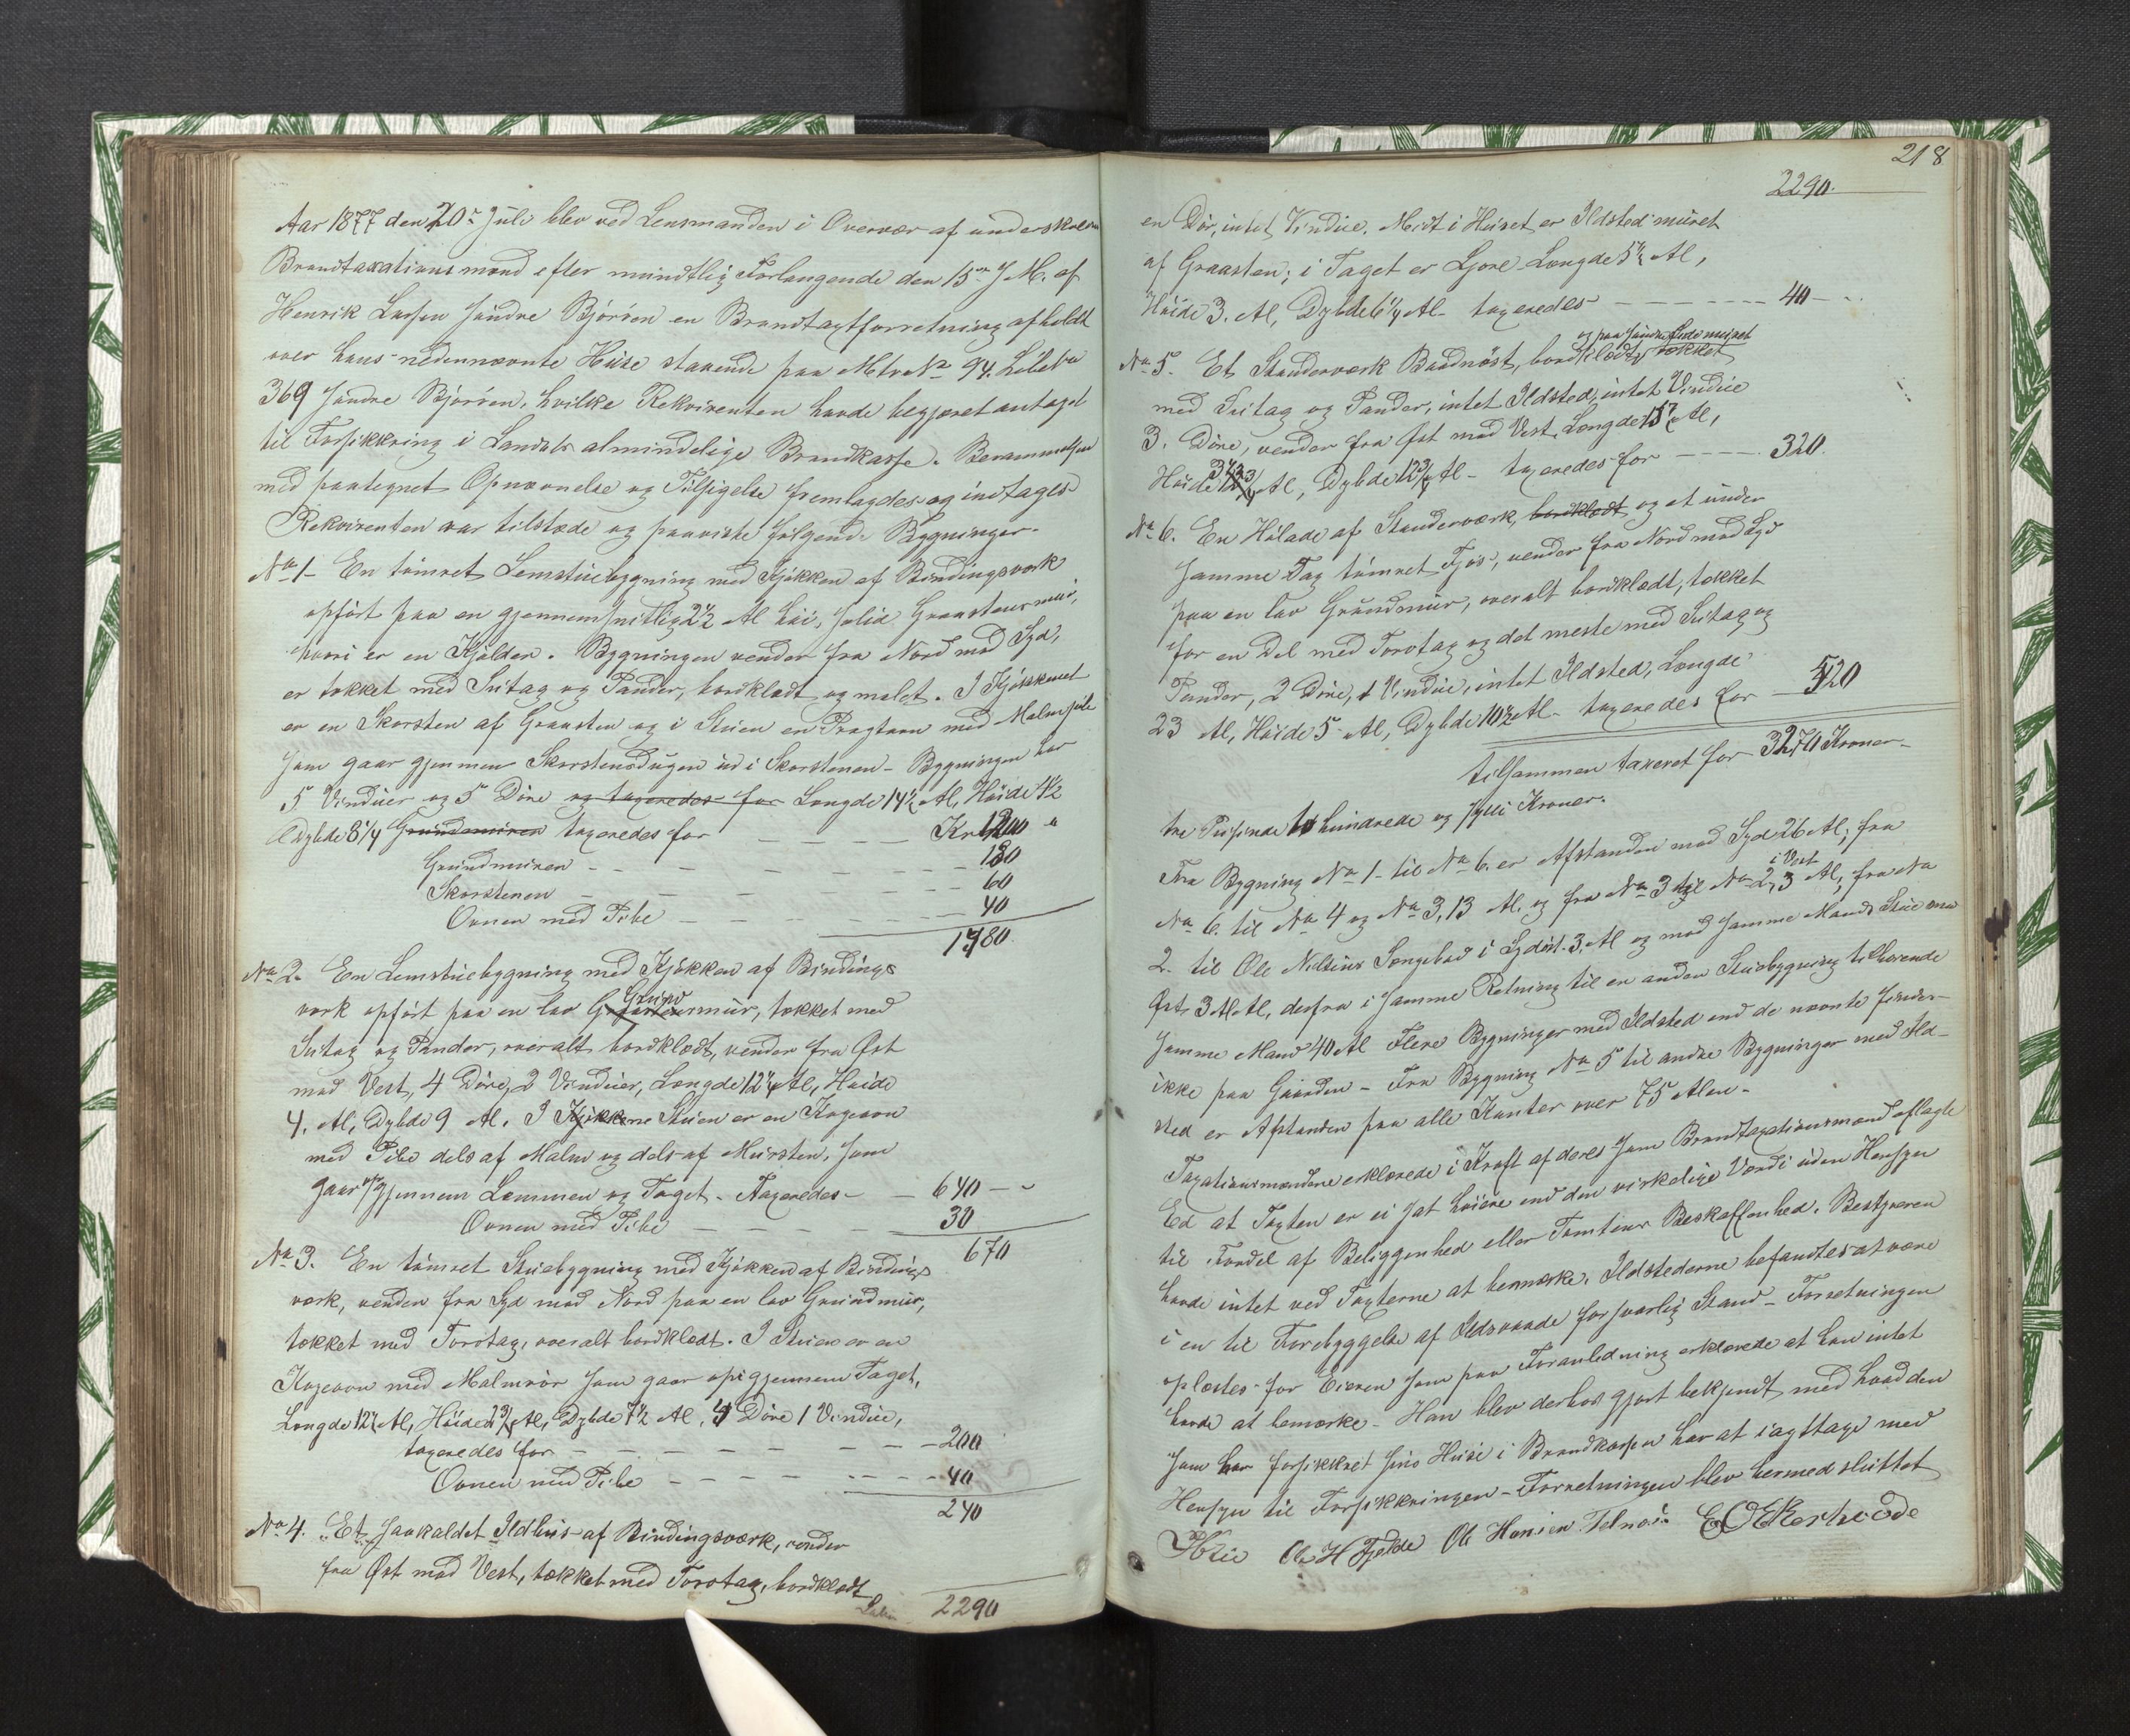 Aar 1877 den 20de Juli blev ved Lensmanden i Overvær af underskrevne
Brandtaxationsmænd efter mundtlig Forlangende den 15de J. M. af
Henrik Larsen søndre Bjørøen en Brandtaxtforretning afholdt
over hans nedennævnte Huse staaende paa Mtr No 94. Løbe No
369 søndre Bjørøen, hvilke Rekvirenten havde begjæret antaget
til Forsikkring i Landets almindelige Brandkasse. Berammelsen
med paategnet Opnævnelse og Tilsigelse fremlagdes og indtages
Rekvirenten var tilstede og paaviste følgende Bygninger.
No 1- En tømret Lemstuebygning med Kjøkken af Bindingsværk
opført paa en gjennemsnitlig 2½ Al høi, solid Graastensmuur,
hvori er en Kjælder. Bygningen vender fra Nord mod Syd,
er tækket med Sutag og Pander, bordklædt og malet. I Kjøkkenet
er en Skorsten af Graasten og i Stuen en Pragtovn med Malmpibe
som gaar gjennem Skorstensdugen ud i Skorstenen - Bygningen har
5 Vinduer og 5 Døre og taxeredes for Længde 14½ Al, Høide 4½
Dybde 8¼ Grundmuren taxeredes for - - - Kr 1200 "
Grundmuren - - - - - - 180
Skorstenen - - - - - - 60
Ovnen med Pibe - - - - - 40
1480.
No 2. En Lemstuebygning med Kjøkken af Bindings
værk opført paa en lav Grundmuur, tækket med
Sutag og Pander, overalt bordklædt, vender fra Øst
mod Vest, 4 Døre, 2 Vinduer, Længde 12¼ Al, Høide
4. Al, Dybde 9 Al. I Kjøkkene Stuen er en Kogeovn
med Pibe dels af Malm og dels af Mursten, som
gaar op gjennem Lemmen og Taget. Taxeredes - - 640 - -
Ovnen med Pibe - - - - 30
670
No 3. En tømret Stuebygning med Kjøkken af Bindings
værk, vender fra Syd mod Nord paa en lav Grundmuur,
tækket med Torvtag, overalt bordklædt. I Stuen er en
Kogeovn med Malmrør som gaar op igjennem Taget,
Længde 12¼ Al, Høide 2¾ Al, Dybde 7½ Al, 4 Døre 1 Vindue,
taxeredes for - - - - - - - 200
Ovnen med Pibe - - - - - - - 40
240
No 4. Et saakaldet Ildhus af Bindingsværk, vender
fra Øst mod Vest, tækket med Torvtag, bordklædt
2290
218
2290.
en Dør, intet Vindue. Midt i Huset er Ildsted muret
af Graasten; i Taget er Ljore Længde 5½ Al,
Høide 3. Al, Dybde 6¼ Al - taxeredes - - - - - - 40 - -
og paa søndre Side muret
No 5. Et Standerværk Baadnøst, bordklædt, tækket
med Sutag og Pander, intet Ildsted, intet Vindue
3. Døre, vender fra Øst mod Vest, Længde 15¼ Al,
Høide 3½ Al, Dybde 12¾ Al - taxeredes for - - - - 320.
No 6. En Hølade af Standerværk, bordklædt og et under
samme Tag tømret Fjøs, vender fra Nord mod Syd
paa en lav Grundmuur, overalt bordklædt, tækket
for en Del med Torvtag og det meste med Sutag og
Pander, 2 Døre, 1 Vindue, intet Ildsted, Længde
23 Al, Høide 5 Al, Dybde 10½ Al - taxeredes for - 520
tilsammen taxeret for 3270 Kroner -
tre Tusinde to hundrede og sytti Kroner.
Fra Bygning No 1- til No 6. er Afstanden mod Syd 26 Al; fra
No 6. til No 4 og No 3, 13 Al. og fra No 3 til No 2, i Vest 3 Al, fra No
2. til Ole Nilsens Sengebod i Sydøst. 3. Al og mod samme Mands Stue mod
Øst 3 Al, derfra i samme Retning til en anden Stuebygning tilhørende
samme Mand 40 Al Flere Bygninger med Ildsted end de nævnte findes
ikke paa Gaarden - Fra Bygning No 5 til andre Bygninger med Ild-
sted er Afstanden paa alle Kanter over 75 Alen -
Taxationsmændene erklærede i Kraft af deres som Brandtaxationsmænd aflagte
Ed at Taxten er ei sat høiere end den virkelige Værdi uden Hensyn
til Fordel af Beliggenhed eller Tomtens Beskaffenhed. Bestyreren
havde intet ved Taxterne at bemærke. Ildstederne befandtes at være
i en til Forebyggelse af Ildsvaade forsvarlig Stand - Forretningen
oplæstes for Eieren som paa Foranledning erklærede at han intet
havde at bemærke - Han blev derhos gjort bekjendt med hvad den
som har forsikkret sine Huse i Brandkassen har at iagttage med
Hensyn til Forsikkringen - Forretningen blev hermed sluttet
Ole H Fjelde Ole Hansen Telnæs